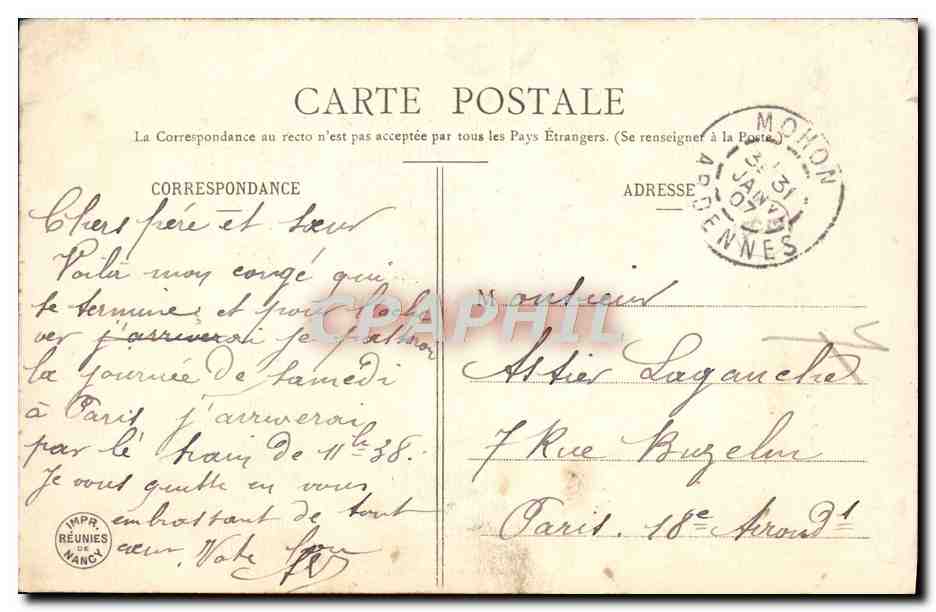 CARTE POSTALE
La Correspondance au recto n'est pas acceptée par tous les Pays Étrangers. (Se renseigner à la Poste.)
CORRESPONDANCE
Chers père et sœur
Voilà mon congé qui
se termine, et pour l'ache
ver j'arriverai je passerai
la journée de Samedi
à Paris j'arriverai
par le train de 11h38.
Je vous quitte en vous
embrassant de tout
cœur. Votre
IMPR.
RÉUNIES
DE
NANCY
ADRESSE
MOHON
31
JANV
07
ARDENNES
Monsieur
Astier Laganche
7 Rue Buzelin
Paris. 18e Arrondt
CPAPHIL